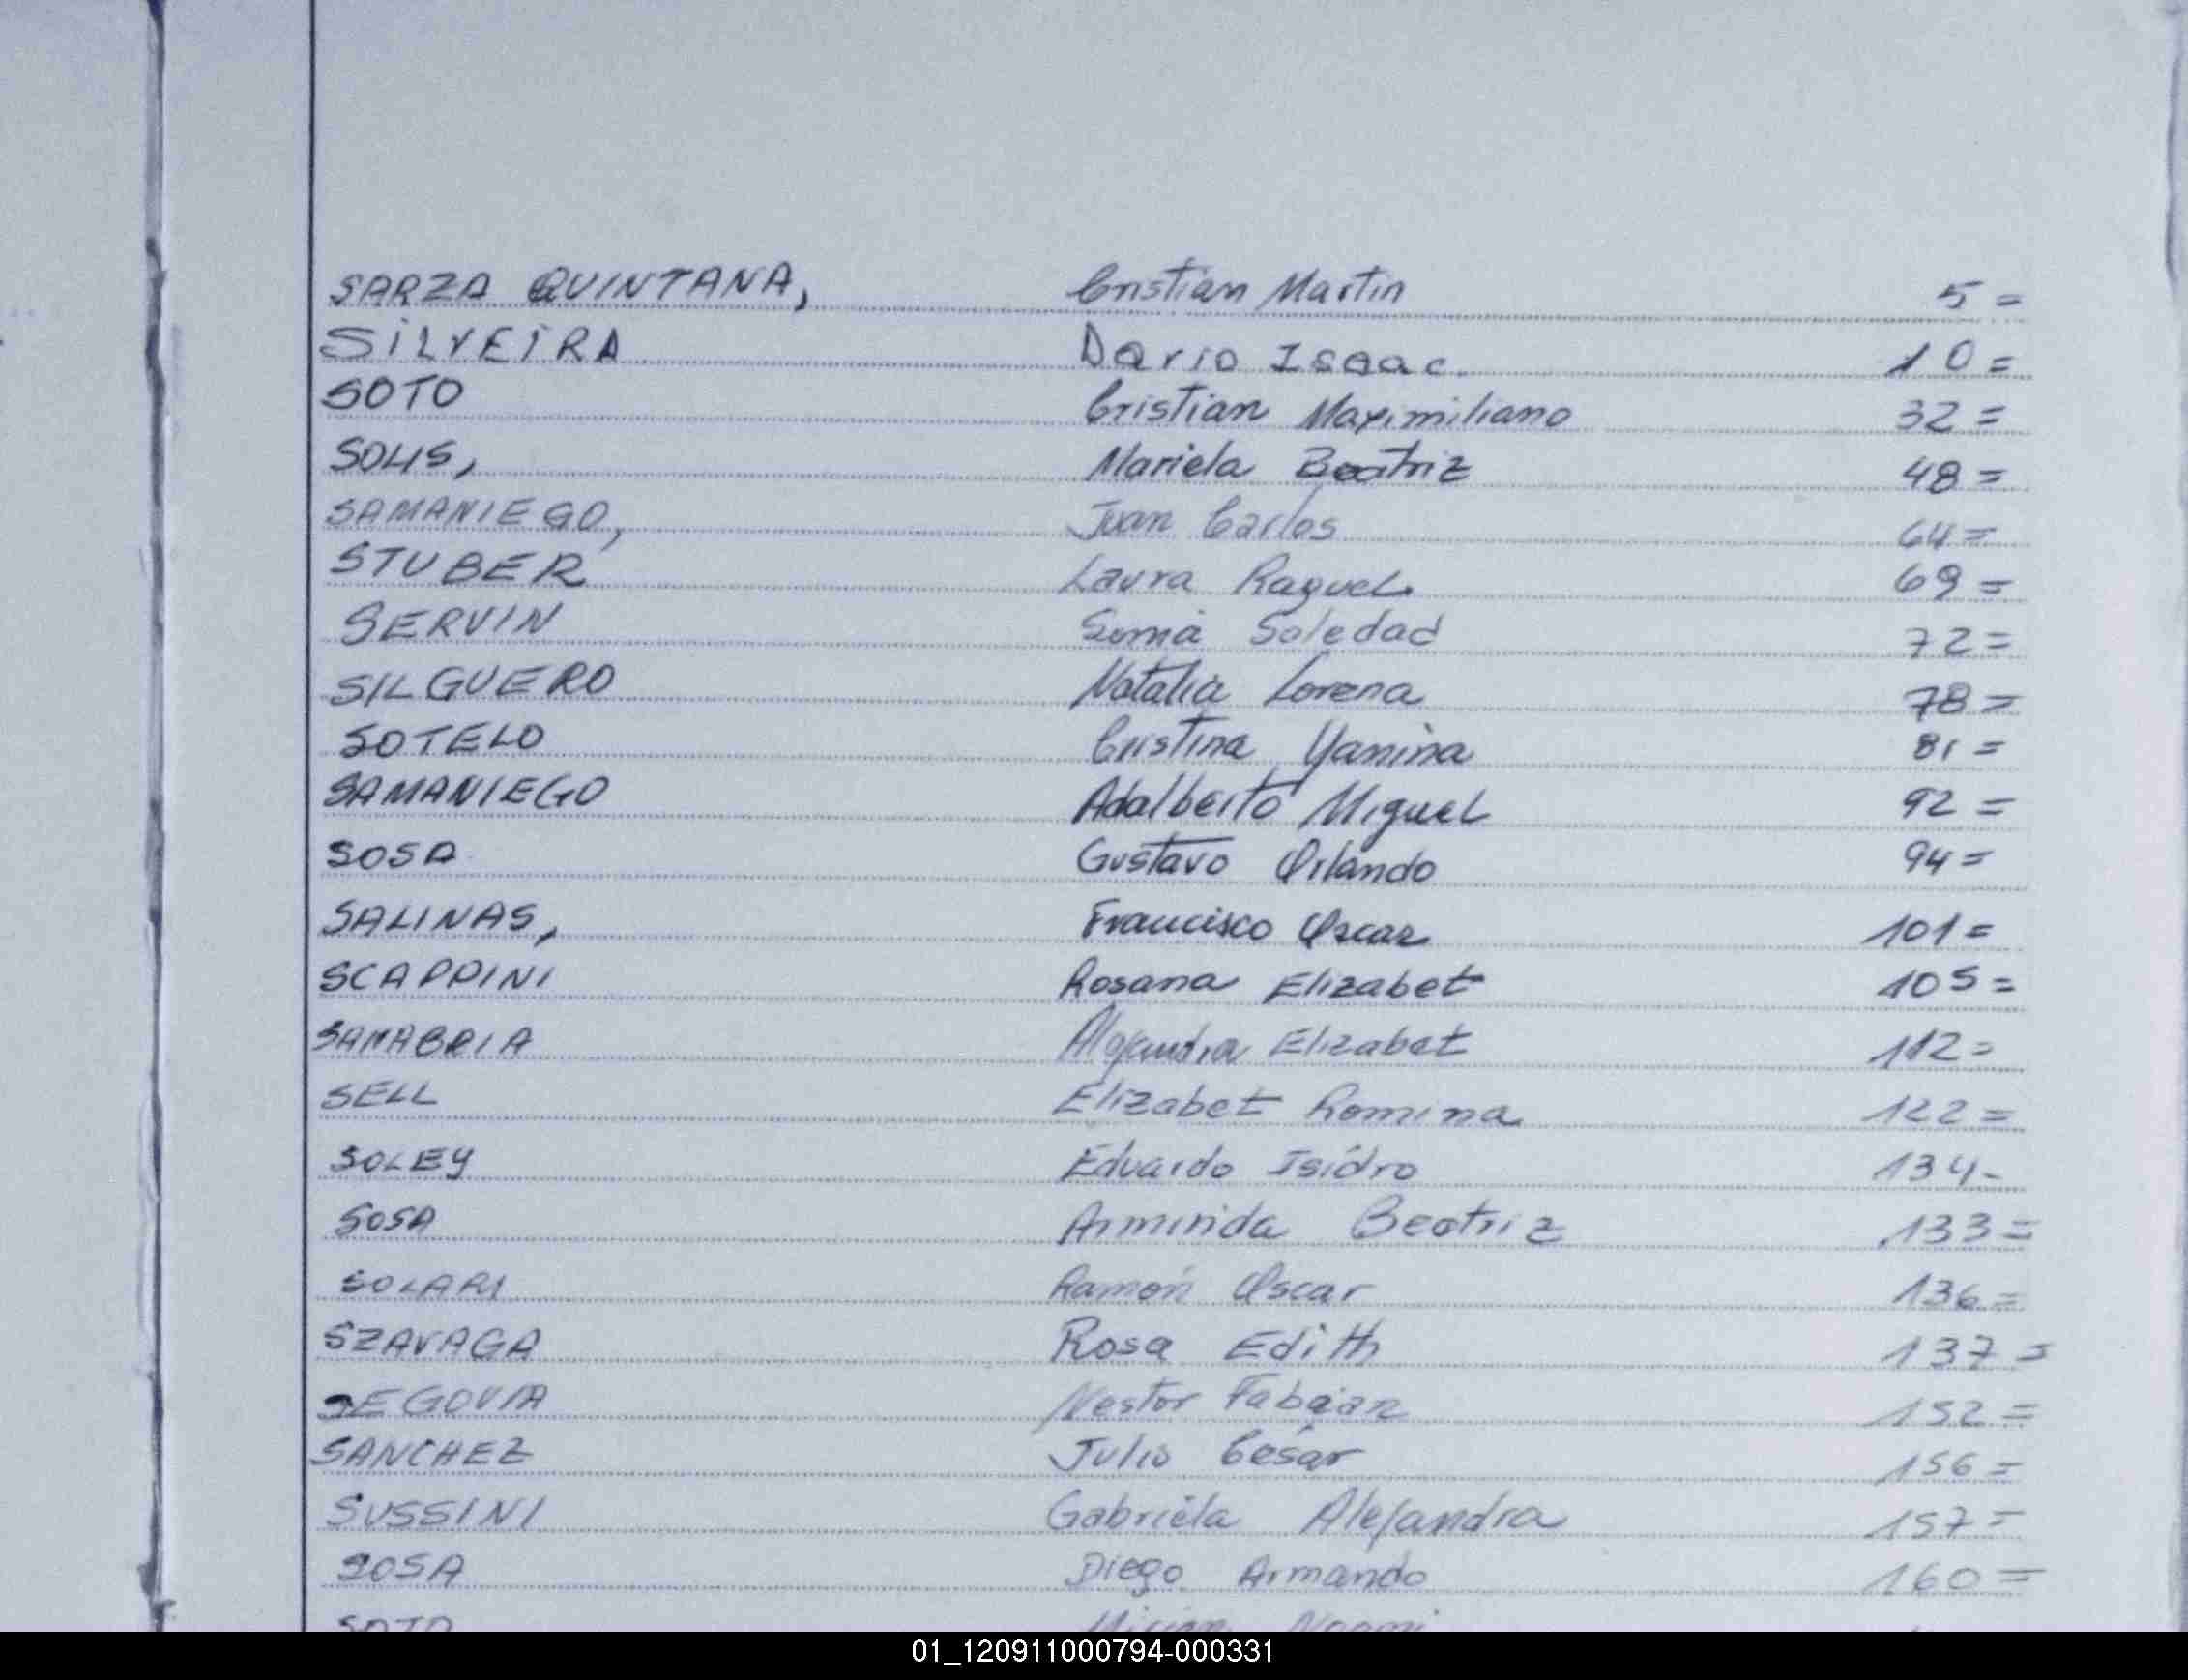 SARZA QUINTANA, Cristian Martin 5=
SILVEIRA Dario Isaac. 10=
SOTO Cristian Maximiliano 32=
SOLIS, Mariela Beatriz 48=
SAMANIEGO, Juan Carlos 64=
STUBER Laura Raquel. 69=
SERVIN Sonia Soledad 72=
SILGUERO Natalia Lorena 78=
SOTELO Cristina Yanina 81=
SAMANIEGO Adalberto Miguel 92=
SOSA Gustavo Orlando 94=
SALINAS, Francisco Oscar 101=
SCAPPINI Rosana Elizabet 105=
SANABRIA Alejandra Elizabet 112=
SELL Elizabet Romina 122=
SOLEY Eduardo Isidro 134-
SOSA Arminda Beatriz 133=
SOLARI Ramón Oscar 136=
SZAVAGA Rosa Edith 137=
SEGOVIA Nestor Fabian 152=
SANCHEZ Julio César 156=
SUSSINI Gabriela Alejandra 157=
SOSA Diego Armando 160=
SOTO Noemi
01_120911000794-000331